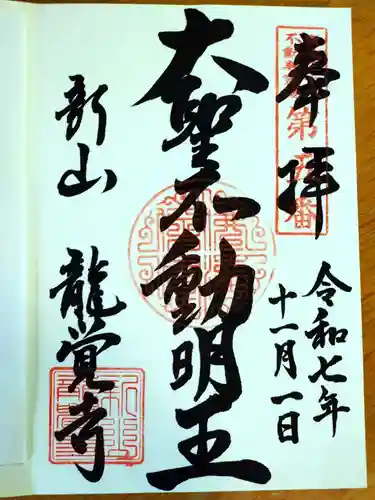 奉拝
令和七年
十一月一日
大聖不動明王
新山
龍覚寺